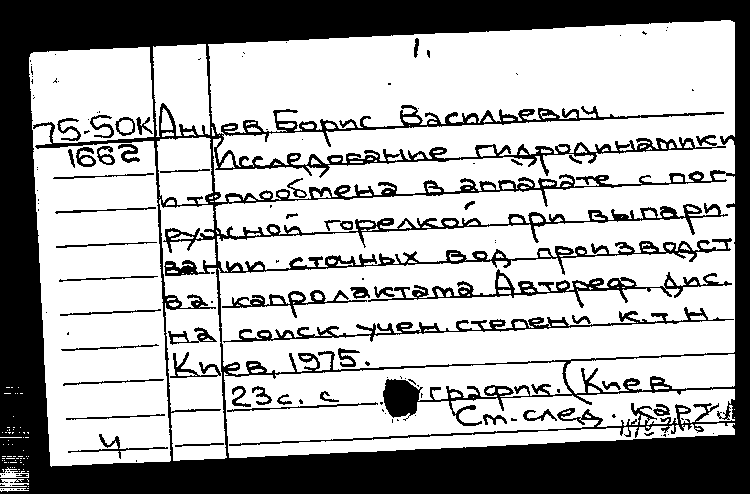 1.
75-50К Анцев, Борис Васильевич.
1662 Исследование гидродинамики
и теплообмена в аппарате с пог-
ружной горелкой при выпари-
вании сточных вод производст-
ва капролактама. Автореф. дис.
на соиск. учен. степени к.т.н.
Киев, 1975.
23с. с график. (Киев.
Ст. след. карт
ч